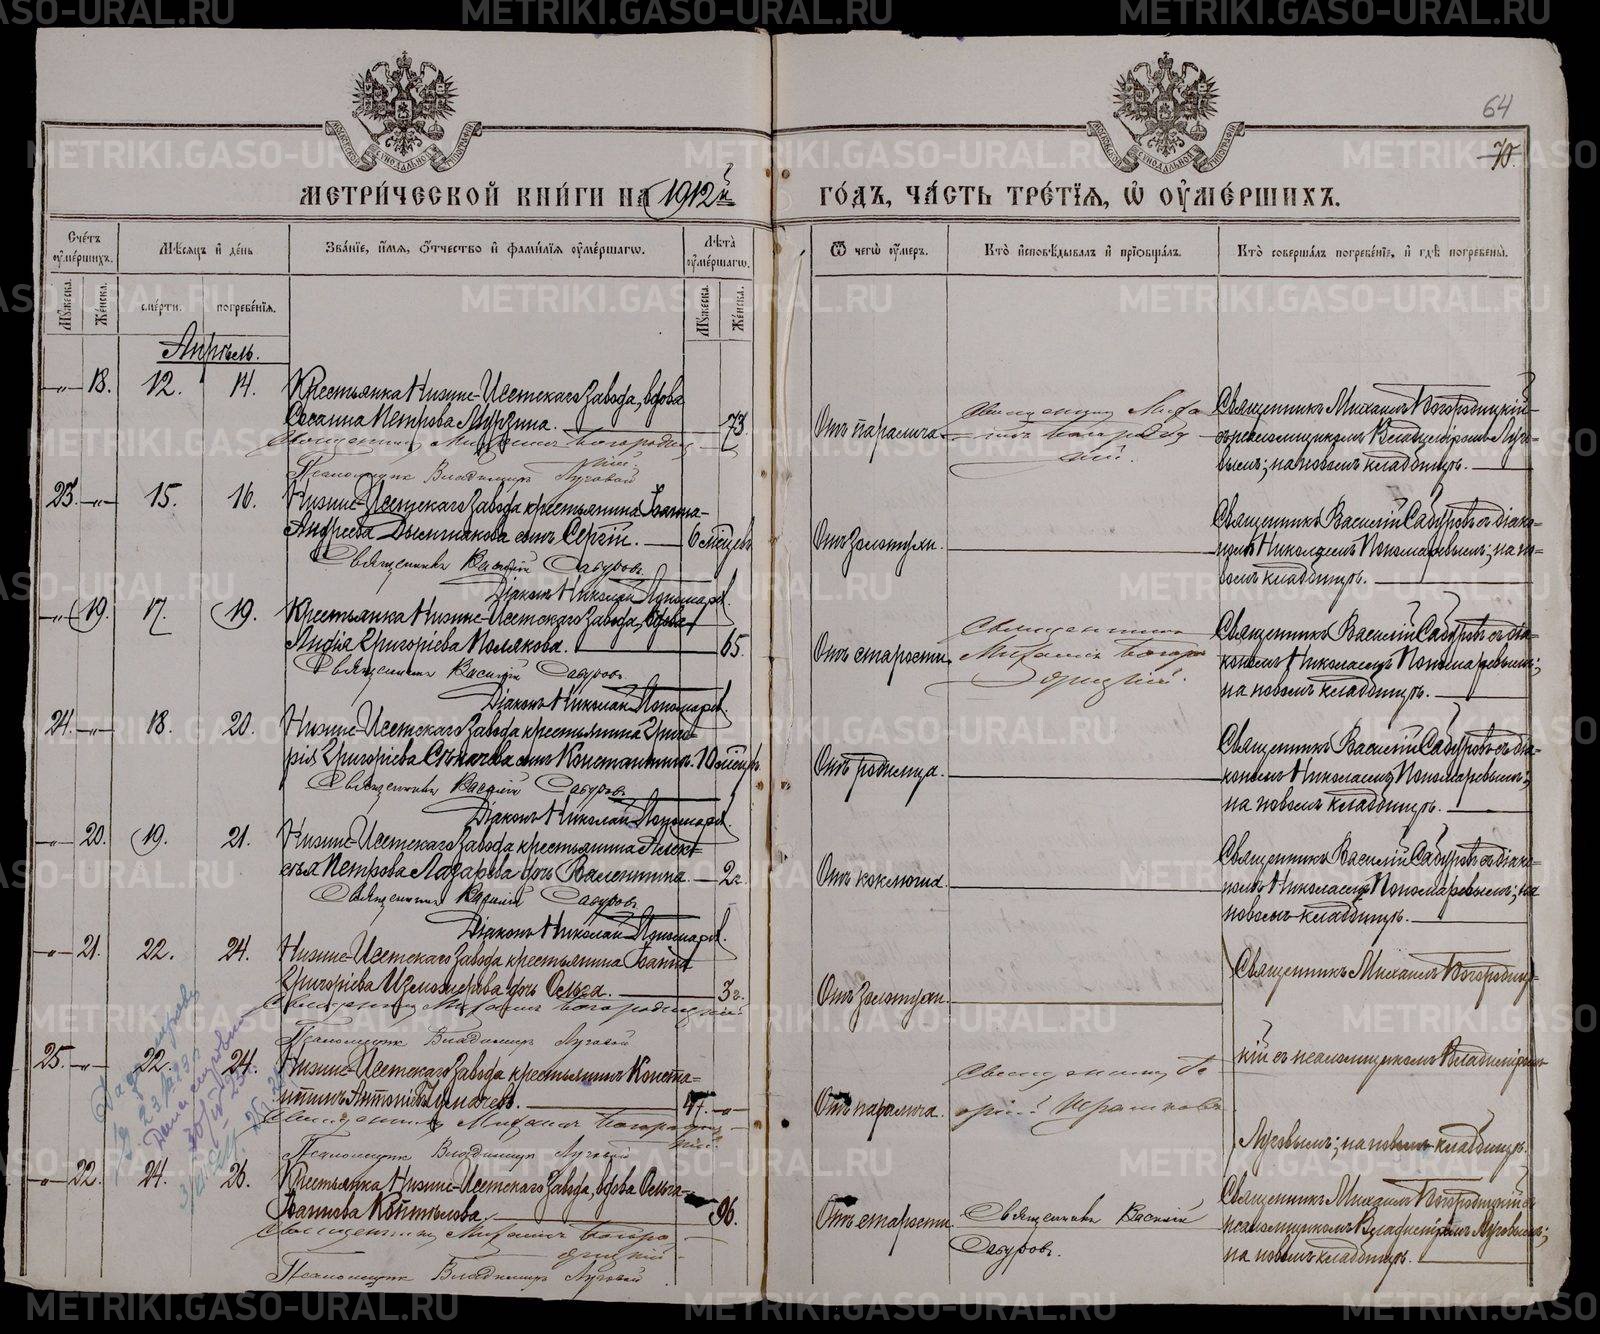 64
70.
МЕТРИЧЕСКОЙ КНИГИ НА 1912й ГОДЪ, ЧАСТЬ ТРЕТІЯ, Ѡ ОУМЕРШИХЪ.
Счетъ оумершихъ.
Мѣсяцъ и день
Званіе, имя, отчество и фамилія оумершагѡ.
Лѣта оумершагѡ.
Ѿ чегѡ оумеръ.
Кто исповѣдывалъ и пріобщалъ.
Кто совершалъ погребеніе, и гдѣ погребены.
Мужеска. Женска.
смерти. погребенія.
Мужеска. Женска.
Апрѣль.
—„— 18. 12. 14. Крестьянка Нижне-Исетскаго завода, вдова
Сосанна Петрова Мурзина. 73.
Священникъ Михаилъ Богородицкій.
Псаломщикъ Владимиръ Луговой
Отъ паралича.
Священникъ Миха-
илъ Богородиц-
кій.
Священникъ Михаилъ Богородицкій
съ псаломщикомъ Владиміромъ Луго-
вымъ; на новомъ кладбищѣ.
23. —„— 15. 16. Нижне-Исетскаго завода крестьянина Іоанна
Андреева сынъ Сергій. 6 мѣсцевъ
Священникъ Василій Сабуровъ.
Діаконъ Николай Пономарев.
Отъ золотухи.
Священникъ Василій Сабуровъ съ діако-
номъ Николаемъ Пономаревымъ; на но-
вомъ кладбищѣ.
—„— 19. 17. 19. Крестьянка Нижне-Исетскаго завода, вдова
Григоріева Полякова. 65.
Священникъ Василій Сабуровъ.
Діаконъ Николай Пономарев.
Отъ старости.
Священникъ
Михаилъ Богоро-
дицкій.
Священникъ Василій Сабуровъ съ діа-
кономъ Николаемъ Пономаревымъ;
на новомъ кладбищѣ.
24. —„— 18. 20. Нижне-Исетскаго завода крестьянина Григо-
рія Григоріева сынъ Константинъ. 10 мѣсцевъ
Священникъ Василій Сабуровъ
Діаконъ Николай Пономарев.
Отъ родимца.
Священникъ Василій Сабуровъ съ діа-
кономъ Николаемъ Пономаревымъ;
на новомъ кладбищѣ.
—„— 20. 19. 21. Нижне-Исетскаго завода крестьянина Алекс-
ѣя Петрова Лазарева дочь Валентина. 2 г.
Священникъ Василій Сабуровъ
Діаконъ Николай Пономарев.
Отъ коклюша.
Священникъ Василій Сабуровъ съ діако-
номъ Николаемъ Пономаревымъ; на
новомъ кладбищѣ.
—„— 21. 22. 24. Нижне-Исетскаго завода крестьянина Іоанна
Григоріева Изможерова дочь Ольга. 3 г.
Священникъ Михаилъ Богородицкій
Псаломщикъ Владимиръ Луговой
Отъ золотухи.
Священникъ Михаилъ Богородиц-
25. —„— 22. 24. Нижне-Исетскаго завода крестьянинъ Конста-
нтинъ 47. —„—
Священникъ Михаилъ Богородиц-
кій.
Псаломщикъ Владимиръ Луговой
Отъ паралича.
Священникъ
кій съ псаломщикомъ Владиміромъ
Луговымъ; на новомъ кладбищѣ.
—„— 22. 24. 26. Крестьянка Нижне-Исетскаго завода, вдова Ольга
Іоаннова 96.
Священникъ Михаилъ Богоро-
дицкій
Псаломщикъ Владимиръ Луговой
Отъ старости.
Священникъ Василій
Сабуровъ.
Священникъ Михаилъ Богородицкій съ
псаломщикомъ Владиміромъ Луговымъ;
на новомъ кладбищѣ.
METRIKI.GASO-URAL.RU